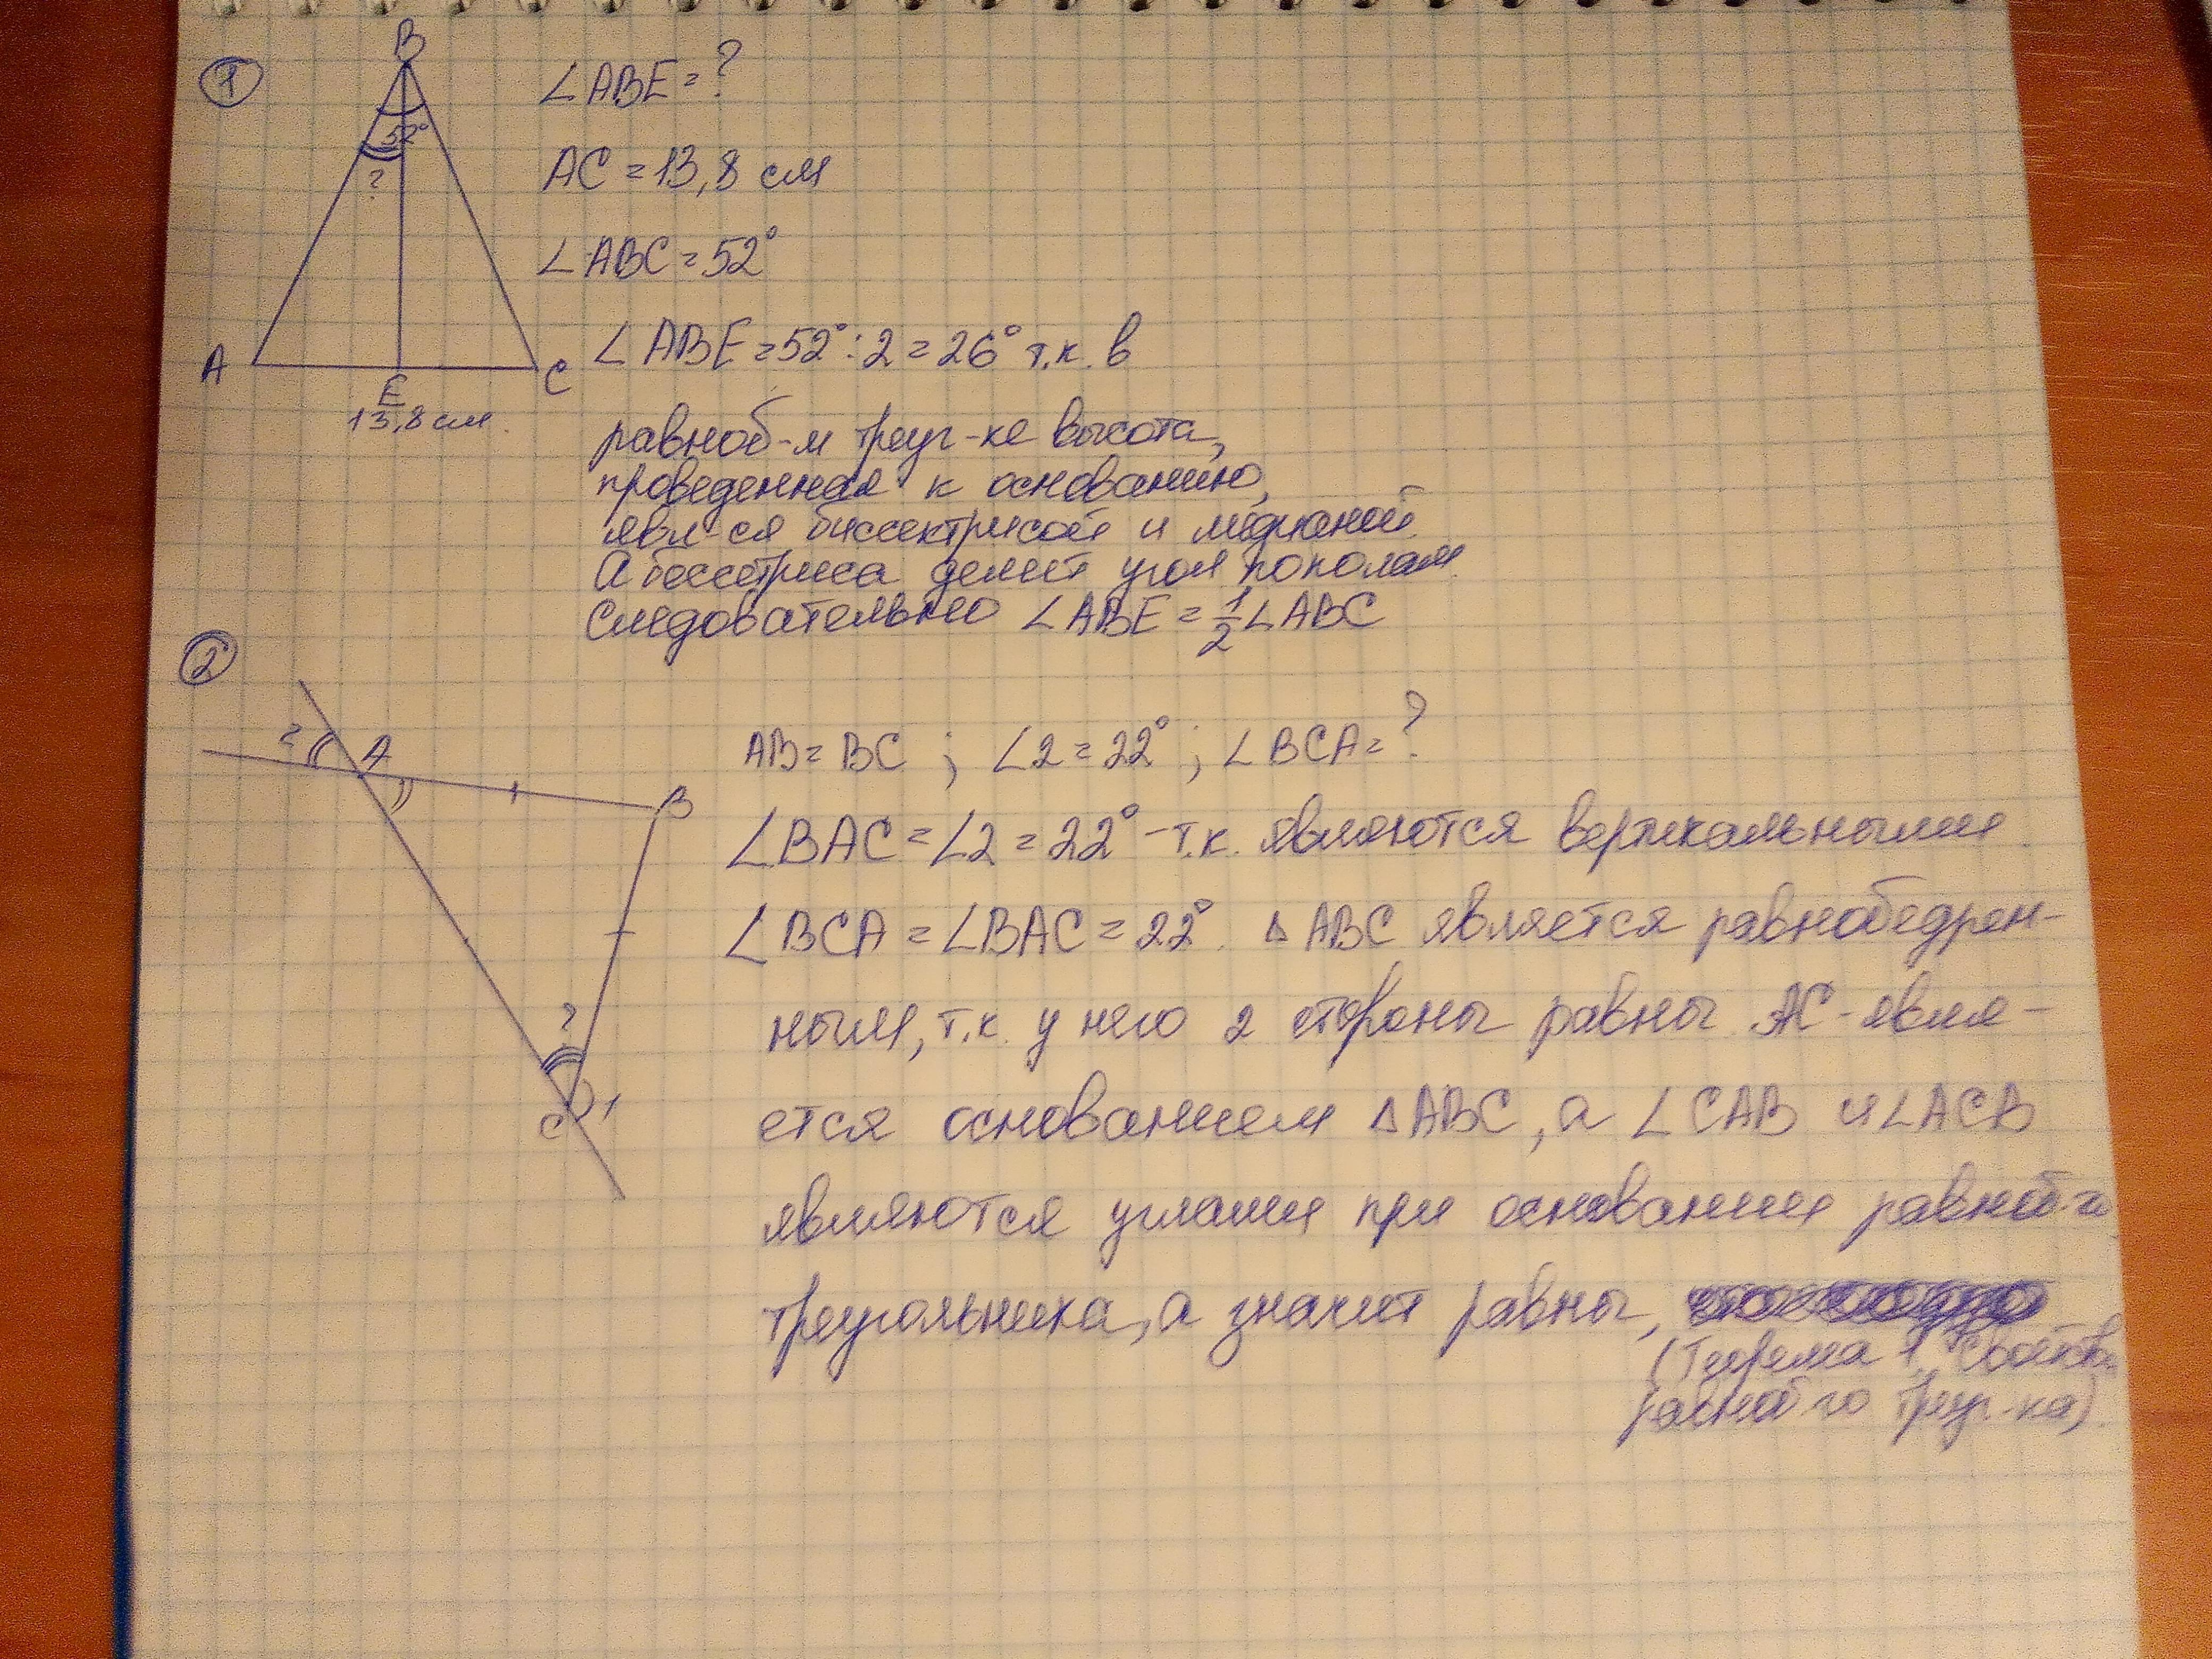 1
B
∠ABE = ?
52°
?
AC = 13,8 см
∠ABC = 52°
∠ABE = 52° : 2 = 26° т.к. в
A
E
C
13,8 см.
равноб-м треуг-ке высота,
проведенная к основанию,
явл-ся биссектрисой и медианой.
А бессетриса делит угол пополам.
Следовательно ∠ABE = 1/2 ∠ABC
2
2
A
B
AB = BC ; ∠2 = 22° ; ∠BCA = ?
∠BAC = ∠2 = 22° - т.к. являются вертикальными.
∠BCA = ∠BAC = 22°. △ABC является равнобедрен-
ным, т.к. у него 2 стороны равны AC - явля-
?
C
1
ется основанием △ABC, а ∠CAB и ∠ACB
являются углами при основании равноб-го
треугольника, а значит равны,
(Теорема 1
равноб го треуг-ка).